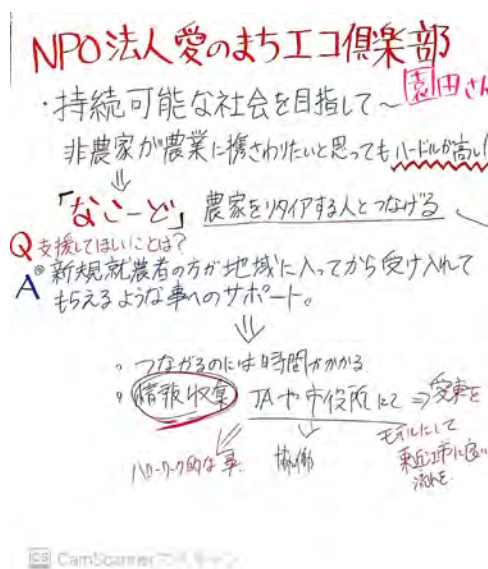 NPO法人愛のまちエコ倶楽部
園田さん
・持続可能な社会を目指して～
非農家が農業に携さわりたいと思ってもハードルが高い!
⇓
「なこーど」 農家をリタイアする人とつなげる
Q 支援してほしいことは?
A 新規就農者の方が地域に入ってから受け入れて
もらえるような事へのサポート。
⇓
・つながるのには時間がかかる
・情報収集 JAや市役所にて ⇒ 愛東を
モデルにして
東近江市に良い
流れを
ハローワーク的な事. 協働
CS CamScannerでスキャン